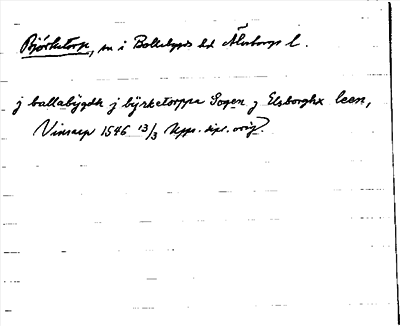 Björketorp, sn i Bollebygds hd Älvsborgs l.
j ballabygdh j byrketorppa Sogen j Elsborghx leen,
Vinsarp 1546 13/3 Upps. dipl. orig.